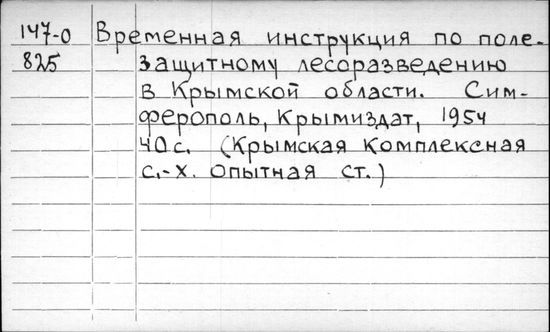 147-0 Временная инструкция по поле-
825 защитному лесоразведению
в Крымской области. Сим-
ферополь, Крымиздат, 1954
40 с. (Крымская комплексная
с.-х. опытная ст.)